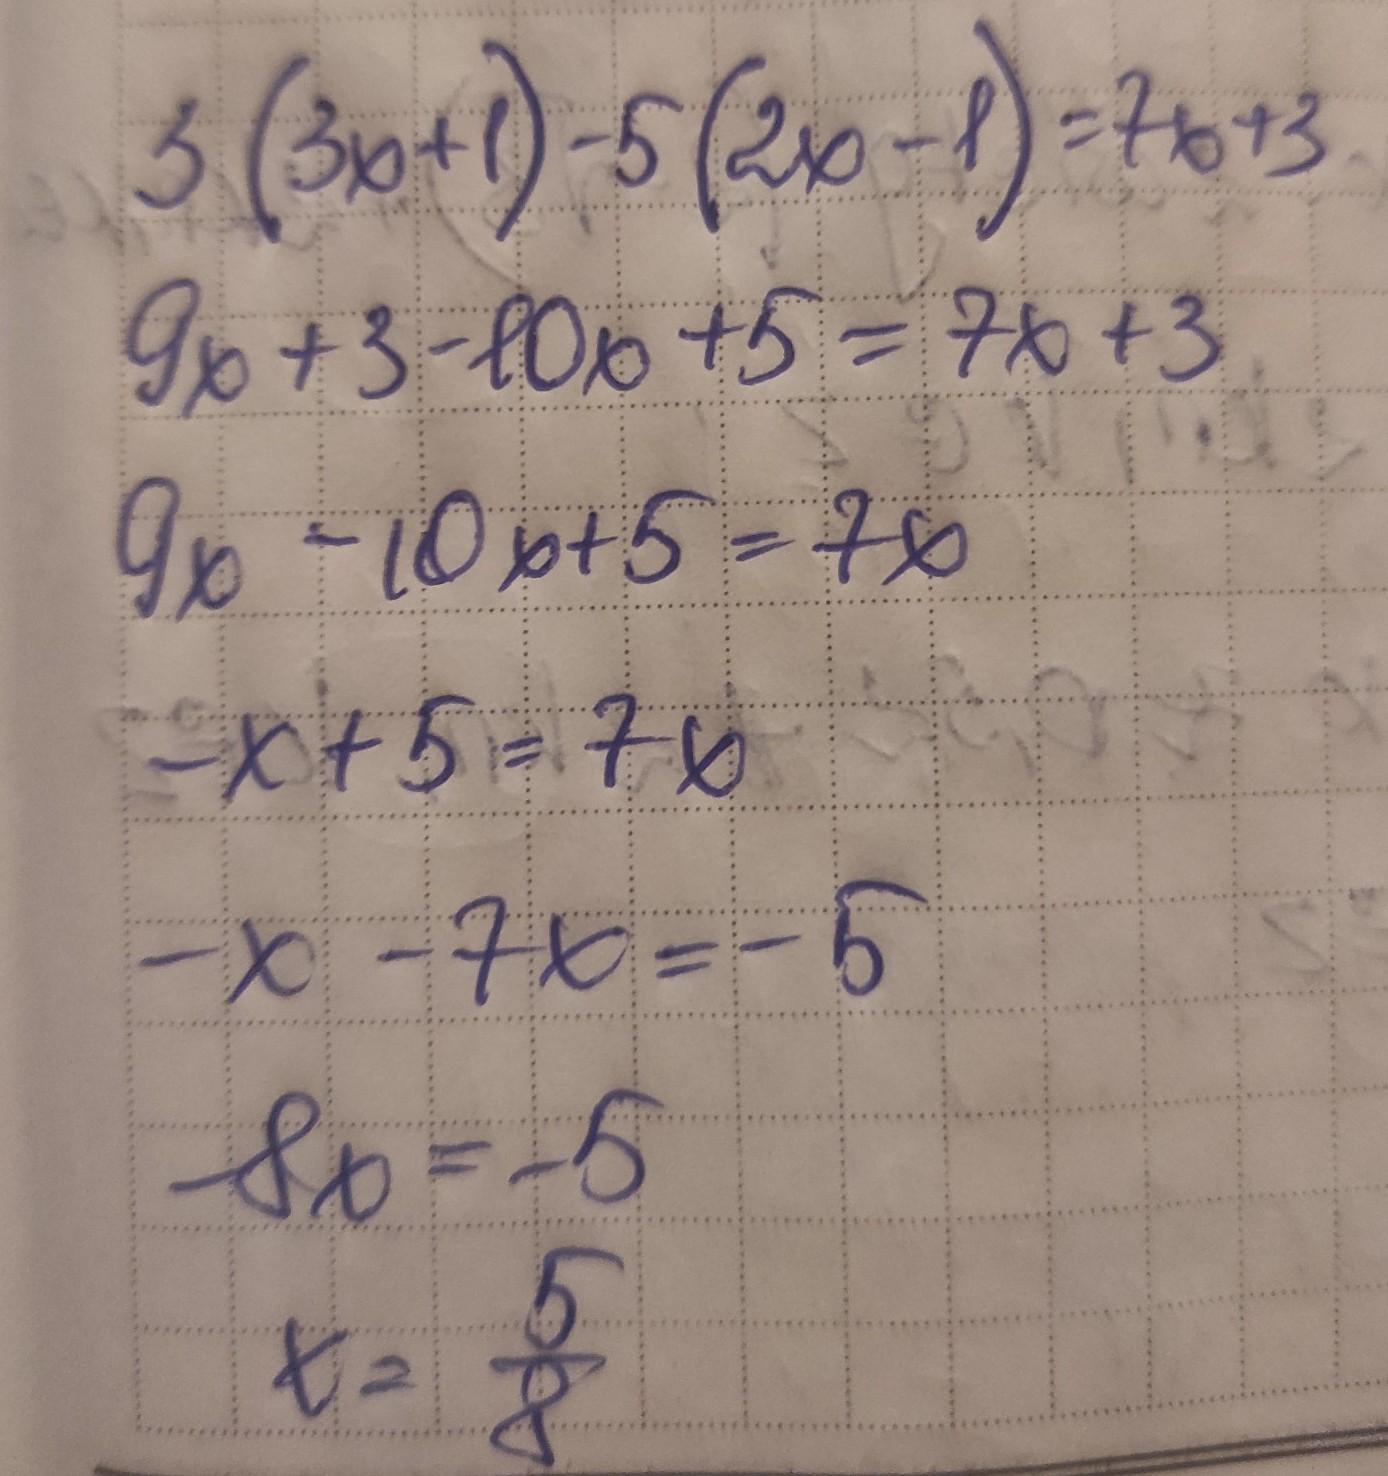 3(3x+1)-5(2x-1)=7x+3
9x+3-10x+5=7x+3
9x-10x+5=7x
-x+5=7x
-x-7x=-5
-8x=-5
x=5/8